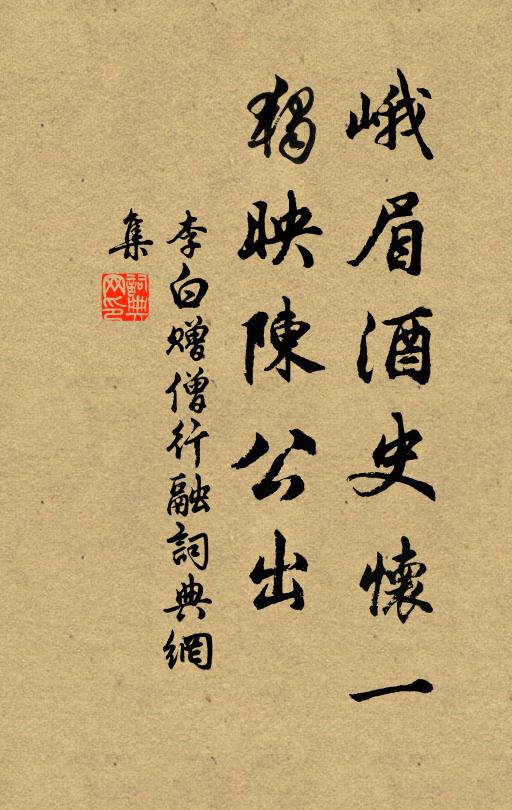 峨眉酒史懷一
獨映陳公出
李白贈僧行融詞典網
集
詞典網印